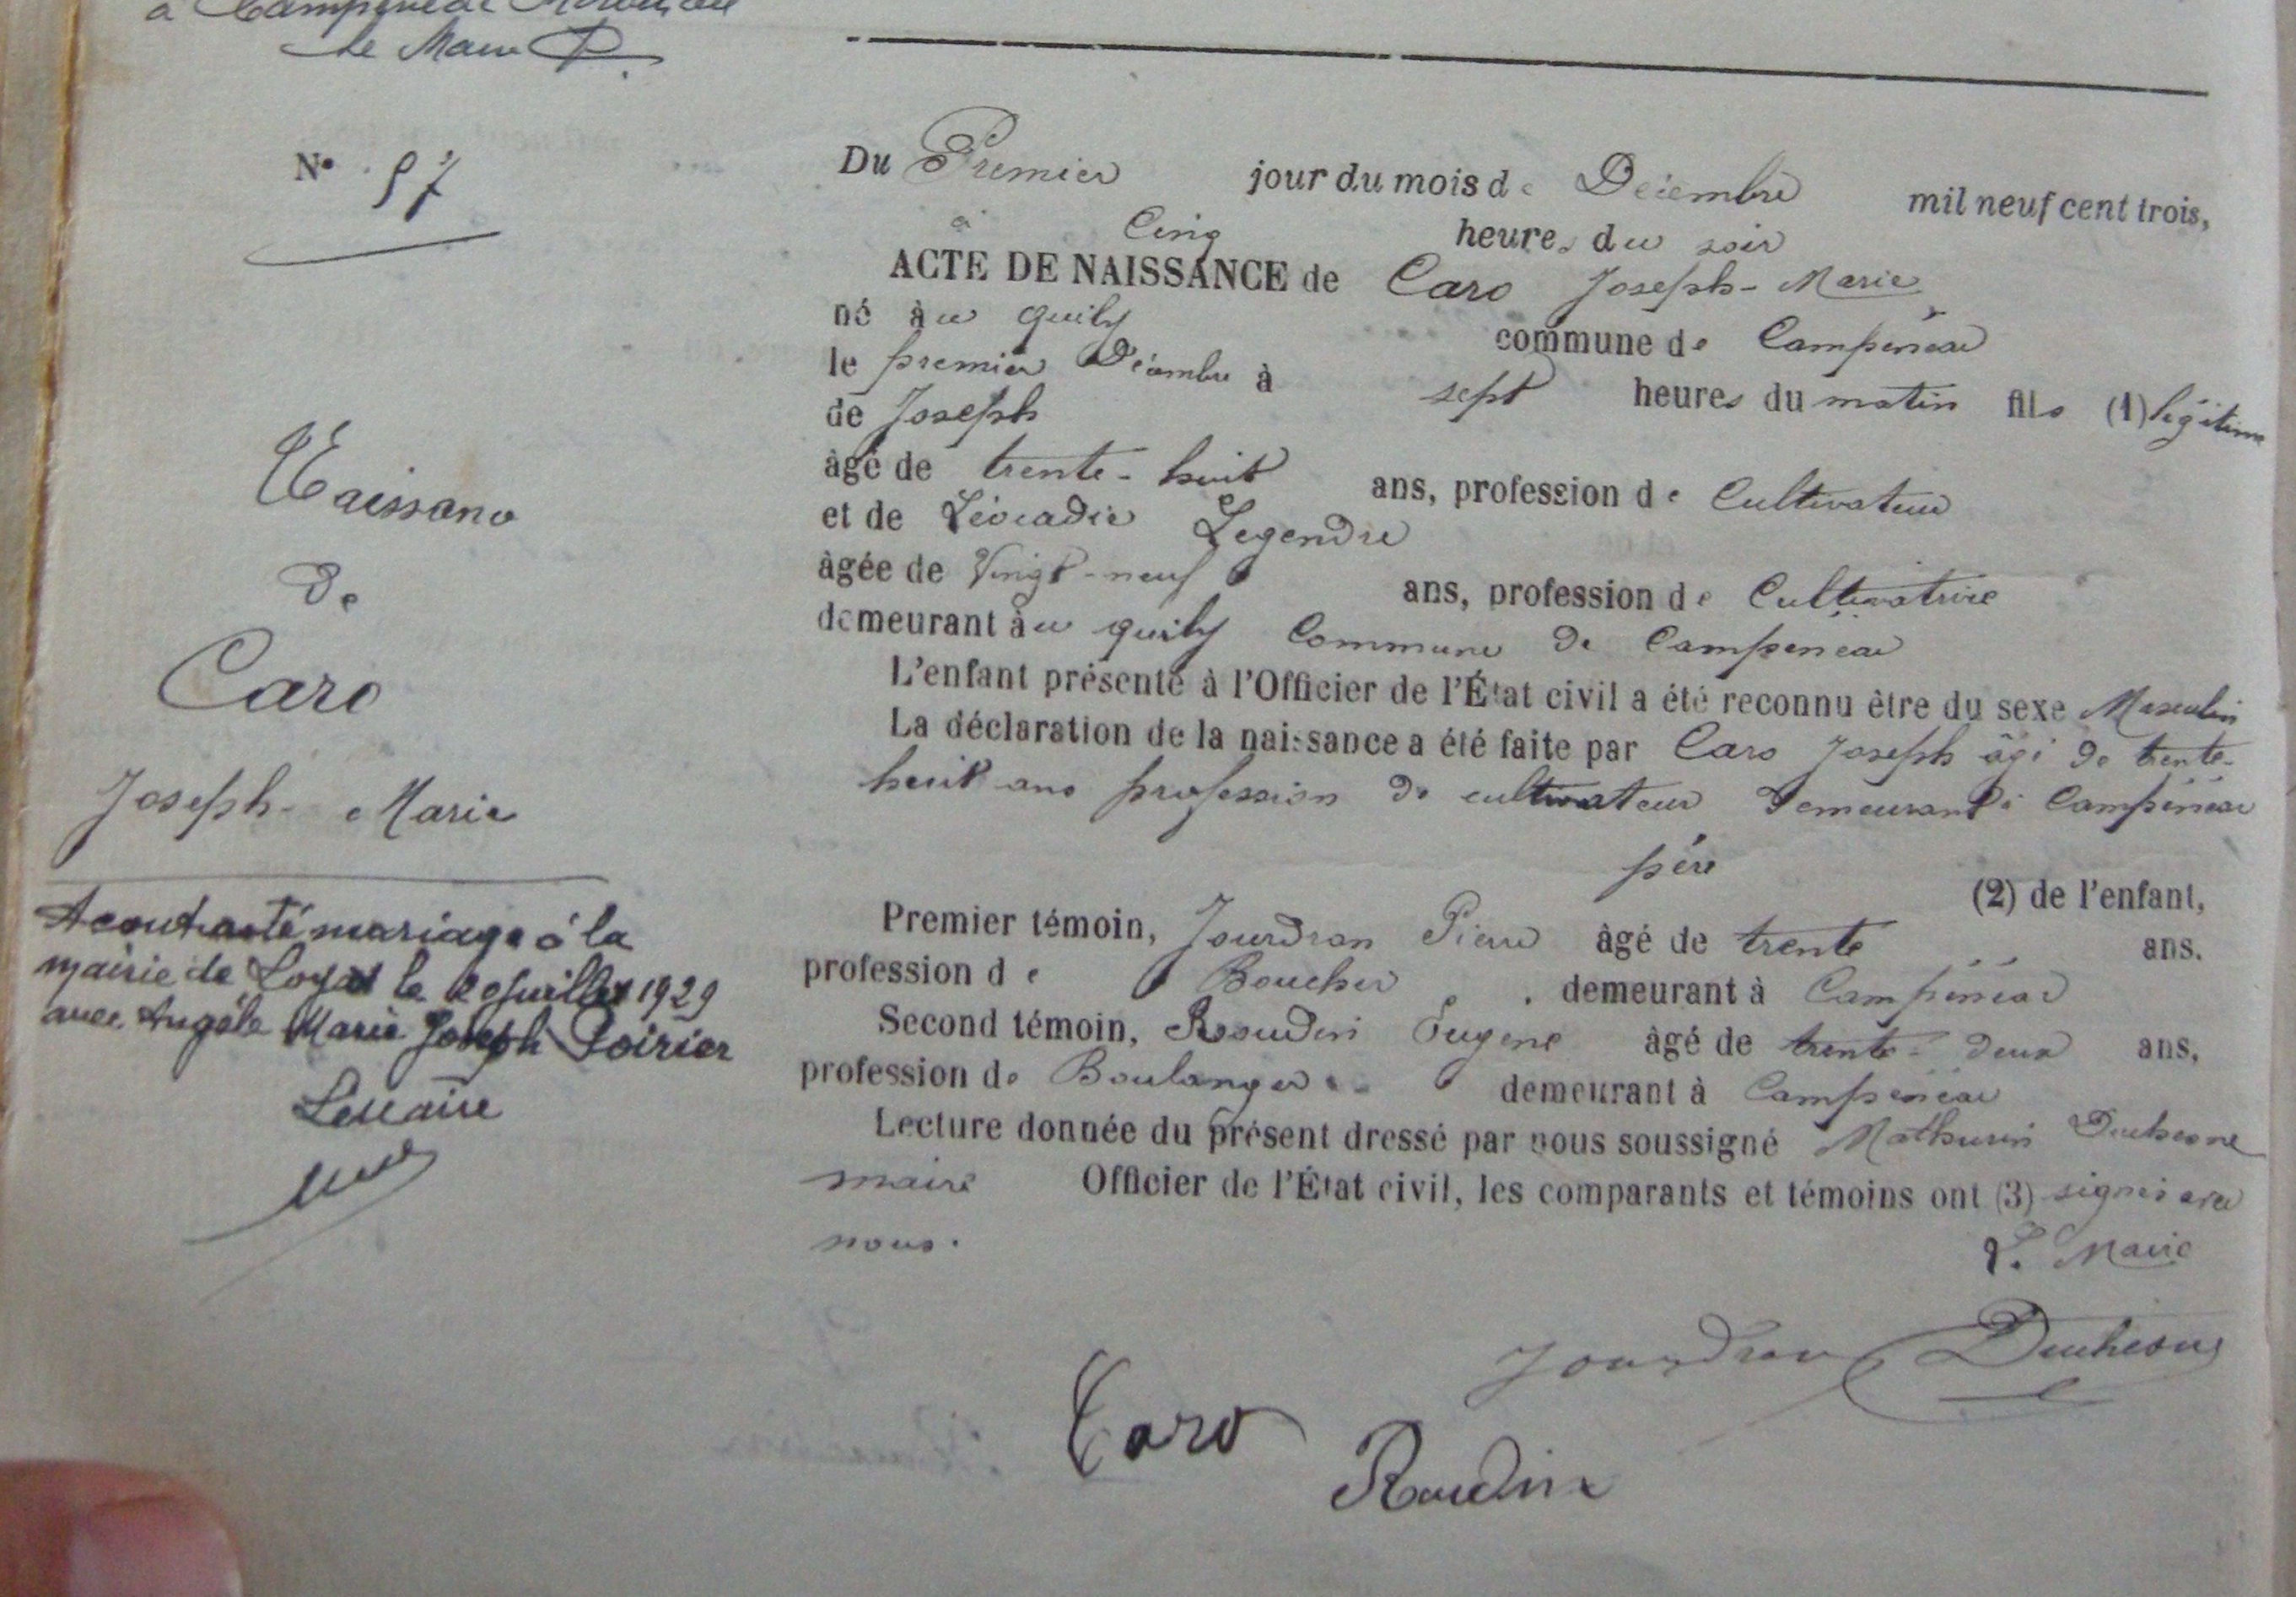 à Campénéac
Le Maire
N° 57
Naissance
De
Caro
Joseph-Marie
A contracté mariage à la
mairie de Loyat le 20 juillet 1929
avec Angèle Marie Joseph Poirier
Le Maire
Du Premier jour du mois de Décembre mil neuf cent trois,
à Cinq heures du soir
ACTE DE NAISSANCE de Caro Joseph-Marie
né àu quily commune de Campénéac
le premier Décembre à sept heures du matin fils (1) légitime
de Joseph
âgé de trente-huit ans, profession de Cultivateur
et de Léocadie Legendre
âgée de Vingt-neuf ans, profession de Cultivatrice
demeurant àu quily Commune de Campénéac
L'enfant présenté à l'Officier de l'État civil a été reconnu être du sexe Masculin
La déclaration de la naissance a été faite par Caro Joseph âgé de trente-
huit ans profession de cultivateur Demeurant à Campénéac
père (2) de l'enfant,
Premier témoin, Jourdran Pierre âgé de trente ans.
profession de Boucher demeurant à Campénéac
Second témoin, Roudin Eugène âgé de trente-deux ans,
profession de Boulanger demeurant à Campénéac
Lecture donnée du présent dressé par nous soussigné Mathurin Duchesne
maire Officier de l'État civil, les comparants et témoins ont (3) signés avec
nous.
L. Maire
Jourdran Duchesne
Caro
Roudin